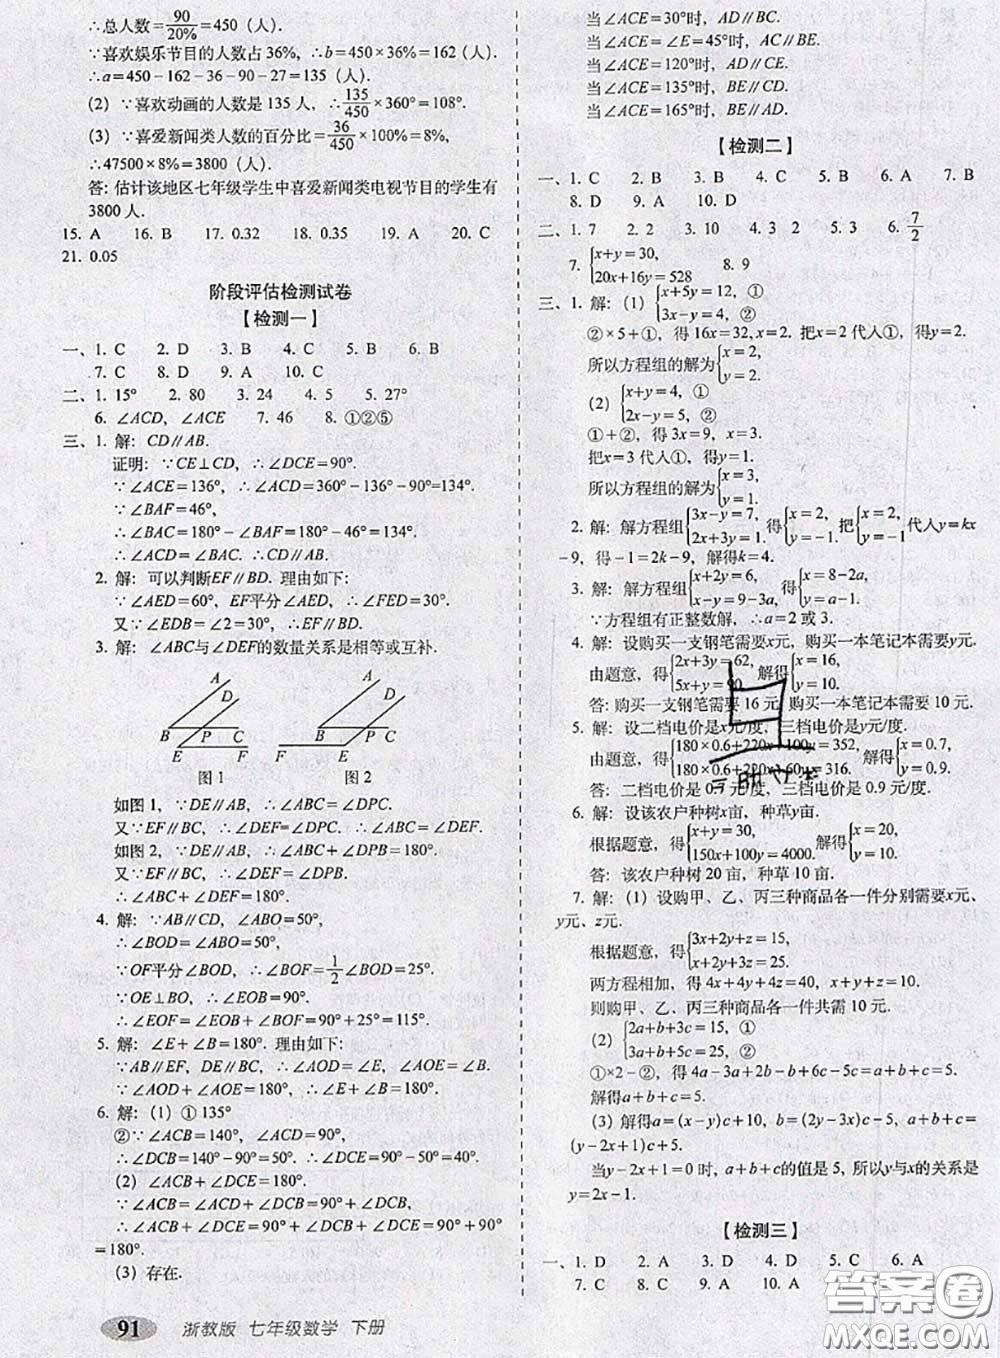 ∴总人数=90/20%=450（人）.
∵喜欢娱乐节目的人数占 36%，∴b=450×36%=162（人）.
∴a=450-162-36-90-27=135（人）.
（2）∵喜欢动画的人数是 135 人，∴135/450×360°=108°.
（3）∵喜爱新闻类人数的百分比=36/450×100%=8%，
∴47500×8%=3800（人）.
答: 估计该地区七年级学生中喜爱新闻类电视节目的学生有
3800 人.
15. A 16. B 17. 0.32 18. 0.35 19. A 20. C
21. 0.05
阶段评估检测试卷
【检测一】
一、1. C 2. D 3. B 4. C 5. B 6. B
7. C 8. D 9. A 10. C
二、1. 15° 2. 80 3. 24 4. 5 5. 27°
6. ∠ACD，∠ACE 7. 46 8. ①②⑤
三、1. 解: CD∥AB.
证明: ∵CE⊥CD，∴∠DCE=90°.
∵∠ACE=136°，∴∠ACD=360°-136°-90°=134°.
∵∠BAF=46°，
∴∠BAC=180°-∠BAF=180°-46°=134°.
∴∠ACD=∠BAC. ∴CD∥AB.
2. 解: 可以判断EF∥BD. 理由如下:
∵∠AED=60°，EF平分∠AED，∴∠FED=30°.
又∵∠EDB=∠2=30°，∴EF∥BD.
3. 解: ∠ABC与∠DEF的数量关系是相等或互补.
A D B P C E F A D B P C E F
图 1 图 2
如图 1，∵DE∥AB，∴∠ABC=∠DPC.
又∵EF∥BC，∴∠DEF=∠DPC. ∴∠ABC=∠DEF.
如图 2，∵DE∥AB，∴∠ABC+∠DPB=180°.
又∵EF∥BC，∴∠DEF=∠DPB.
∴∠ABC+∠DEF=180°.
4. 解: ∵AB∥CD，∠ABO=50°，
∴∠BOD=∠ABO=50°，
∵OF平分∠BOD，∴∠BOF=1/2∠BOD=25°.
∵OE⊥BO，∴∠EOB=90°.
∴∠EOF=∠EOB+∠BOF=90°+25°=115°.
5. 解: ∠E+∠B=180°. 理由如下:
∵AB∥EF，DE∥BC，∴∠E=∠AOE，∠B=∠AOD.
∵∠AOD+∠AOE=180°，∴∠E+∠B=180°.
6. 解:（1）① 135°
②∵∠ACB=140°，∠ACD=90°，
∴∠DCB=140°-90°=50°. ∴∠DCE=90°-50°=40°.
（2）∠ACB+∠DCE=180°.
∵∠ACB=∠ACD+∠DCB=90°+∠DCB，
∴∠ACB+∠DCE=90°+∠DCB+∠DCE=90°+90°
=180°.
（3）存在.
91 浙教版 七年级数学 下册
当∠ACE=30°时，AD∥BC.
当∠ACE=∠E=45°时，AC∥BE.
当∠ACE=120°时，AD∥CE.
当∠ACE=135°时，BE∥CD.
当∠ACE=165°时，BE∥AD.
【检测二】
一、1. C 2. B 3. B 4. C 5. C 6. A 7. B
8. D 9. A 10. D
二、1. 7 2. 2 3. 10 4. 3 2 5. 3 6. 7/2
7. {x+y=30, 20x+16y=528 8. 9
三、1. 解:（1）{x+5y=12，① 3x-y=4，②
②×5+①，得 16x=32, x=2. 把x=2 代人①，得y=2.
所以方程组的解为{x=2, y=2.
（2）{x+y=4，① 2x-y=5，②
①+②，得 3x=9，x=3.
把x=3 代人①，得y=1.
所以方程组的解为{x=3, y=1.
2. 解: 解方程组{3x-y=7, 2x+3y=1. 得{x=2, y=-1. 把{x=2, y=-1.代人y=kx
-9，得-1=2k-9，解得k=4.
3. 解: 解方程组{x+2y=6, x-y=9-3a, 得{x=8-2a, y=a-1.
∵方程组有正整数解，∴a=2 或 3.
4. 解: 设购买一支钢笔需要x元，购买一本笔记本需要y元.
由题意，得{2x+3y=62, 5x+y=90. 解得{x=16, y=10.
答: 购买一支钢笔需要 16 元，购买一本笔记本需要 10 元.
5. 解: 设二档电价是x元/度，三档电价是y元/度.
由题意，得{180×0.6+220x+100y=352, 180×0.6+220x+60y=316. 解得{x=0.7, y=0.9.
答: 二档电价是 0.7 元/度，三档电价是 0.9 元/度.
6. 解: 设该农户种树x亩，种草y亩.
根据题意，得{x+y=30, 150x+100y=4000. 解得{x=20, y=10.
答: 该农户种树 20 亩，种草 10 亩.
7. 解:（1）设购甲、乙、丙三种商品各一件分别需要x元、
y元、z元.
根据题意，得{3x+2y+z=15, x+2y+3z=25.
两方程相加，得 4x+4y+4z=40，x+y+z=10.
则购甲、乙、丙三种商品各一件共需 10 元.
（2）{2a+b+3c=15，① 3a+b+5c=25，②
①×2-②，得 4a-3a+2b-b+6c-5c=30-25.
解得a+b+c=5.
（3）解得a=(x-y)c+10，b=(2y-3x)c-5，a+b+c=
(y-2x+1)c+5.
当y-2x+1=0 时，a+b+c的值是 5，所以y与x的关系是
y=2x-1.
【检测三】
一、1. D 2. A 3. D 4. D 5. C 6. A
7. C 8. C 9. A 10. A
答案卷
MXQE.COM